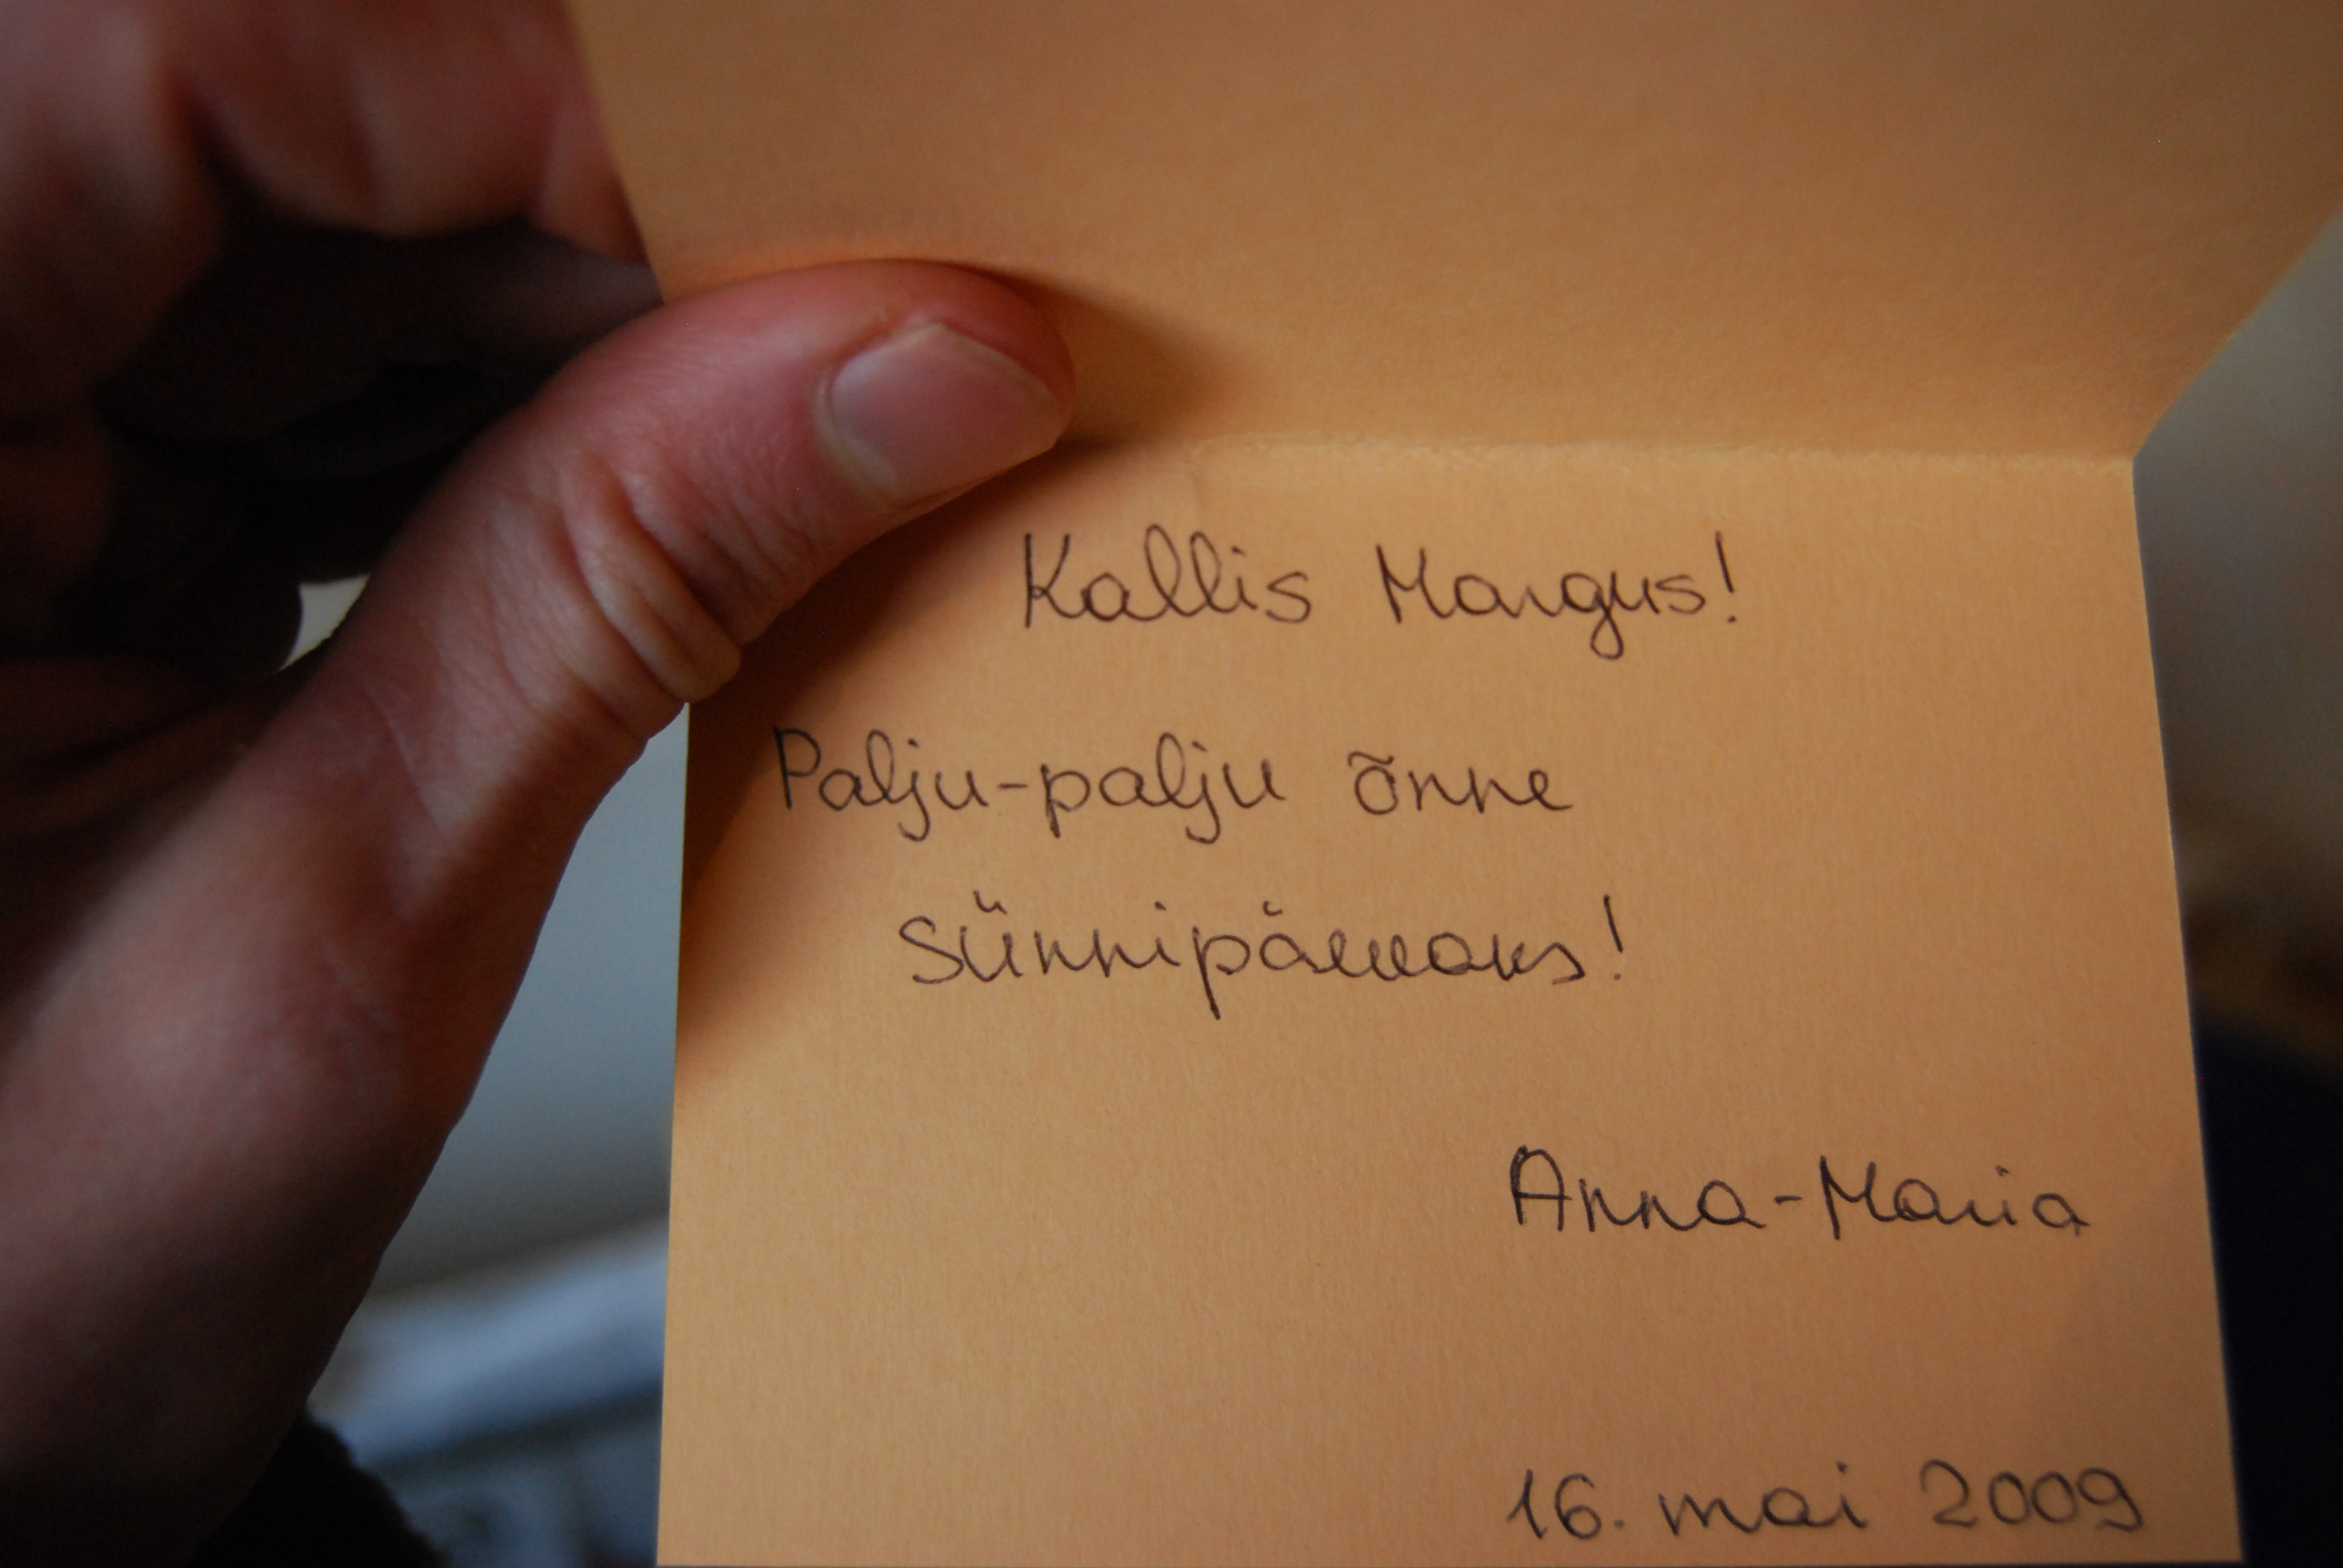 Kallis Margus!
Palju-palju õnne
sünnipäevaks!
Anna-Maria
16. mai 2009